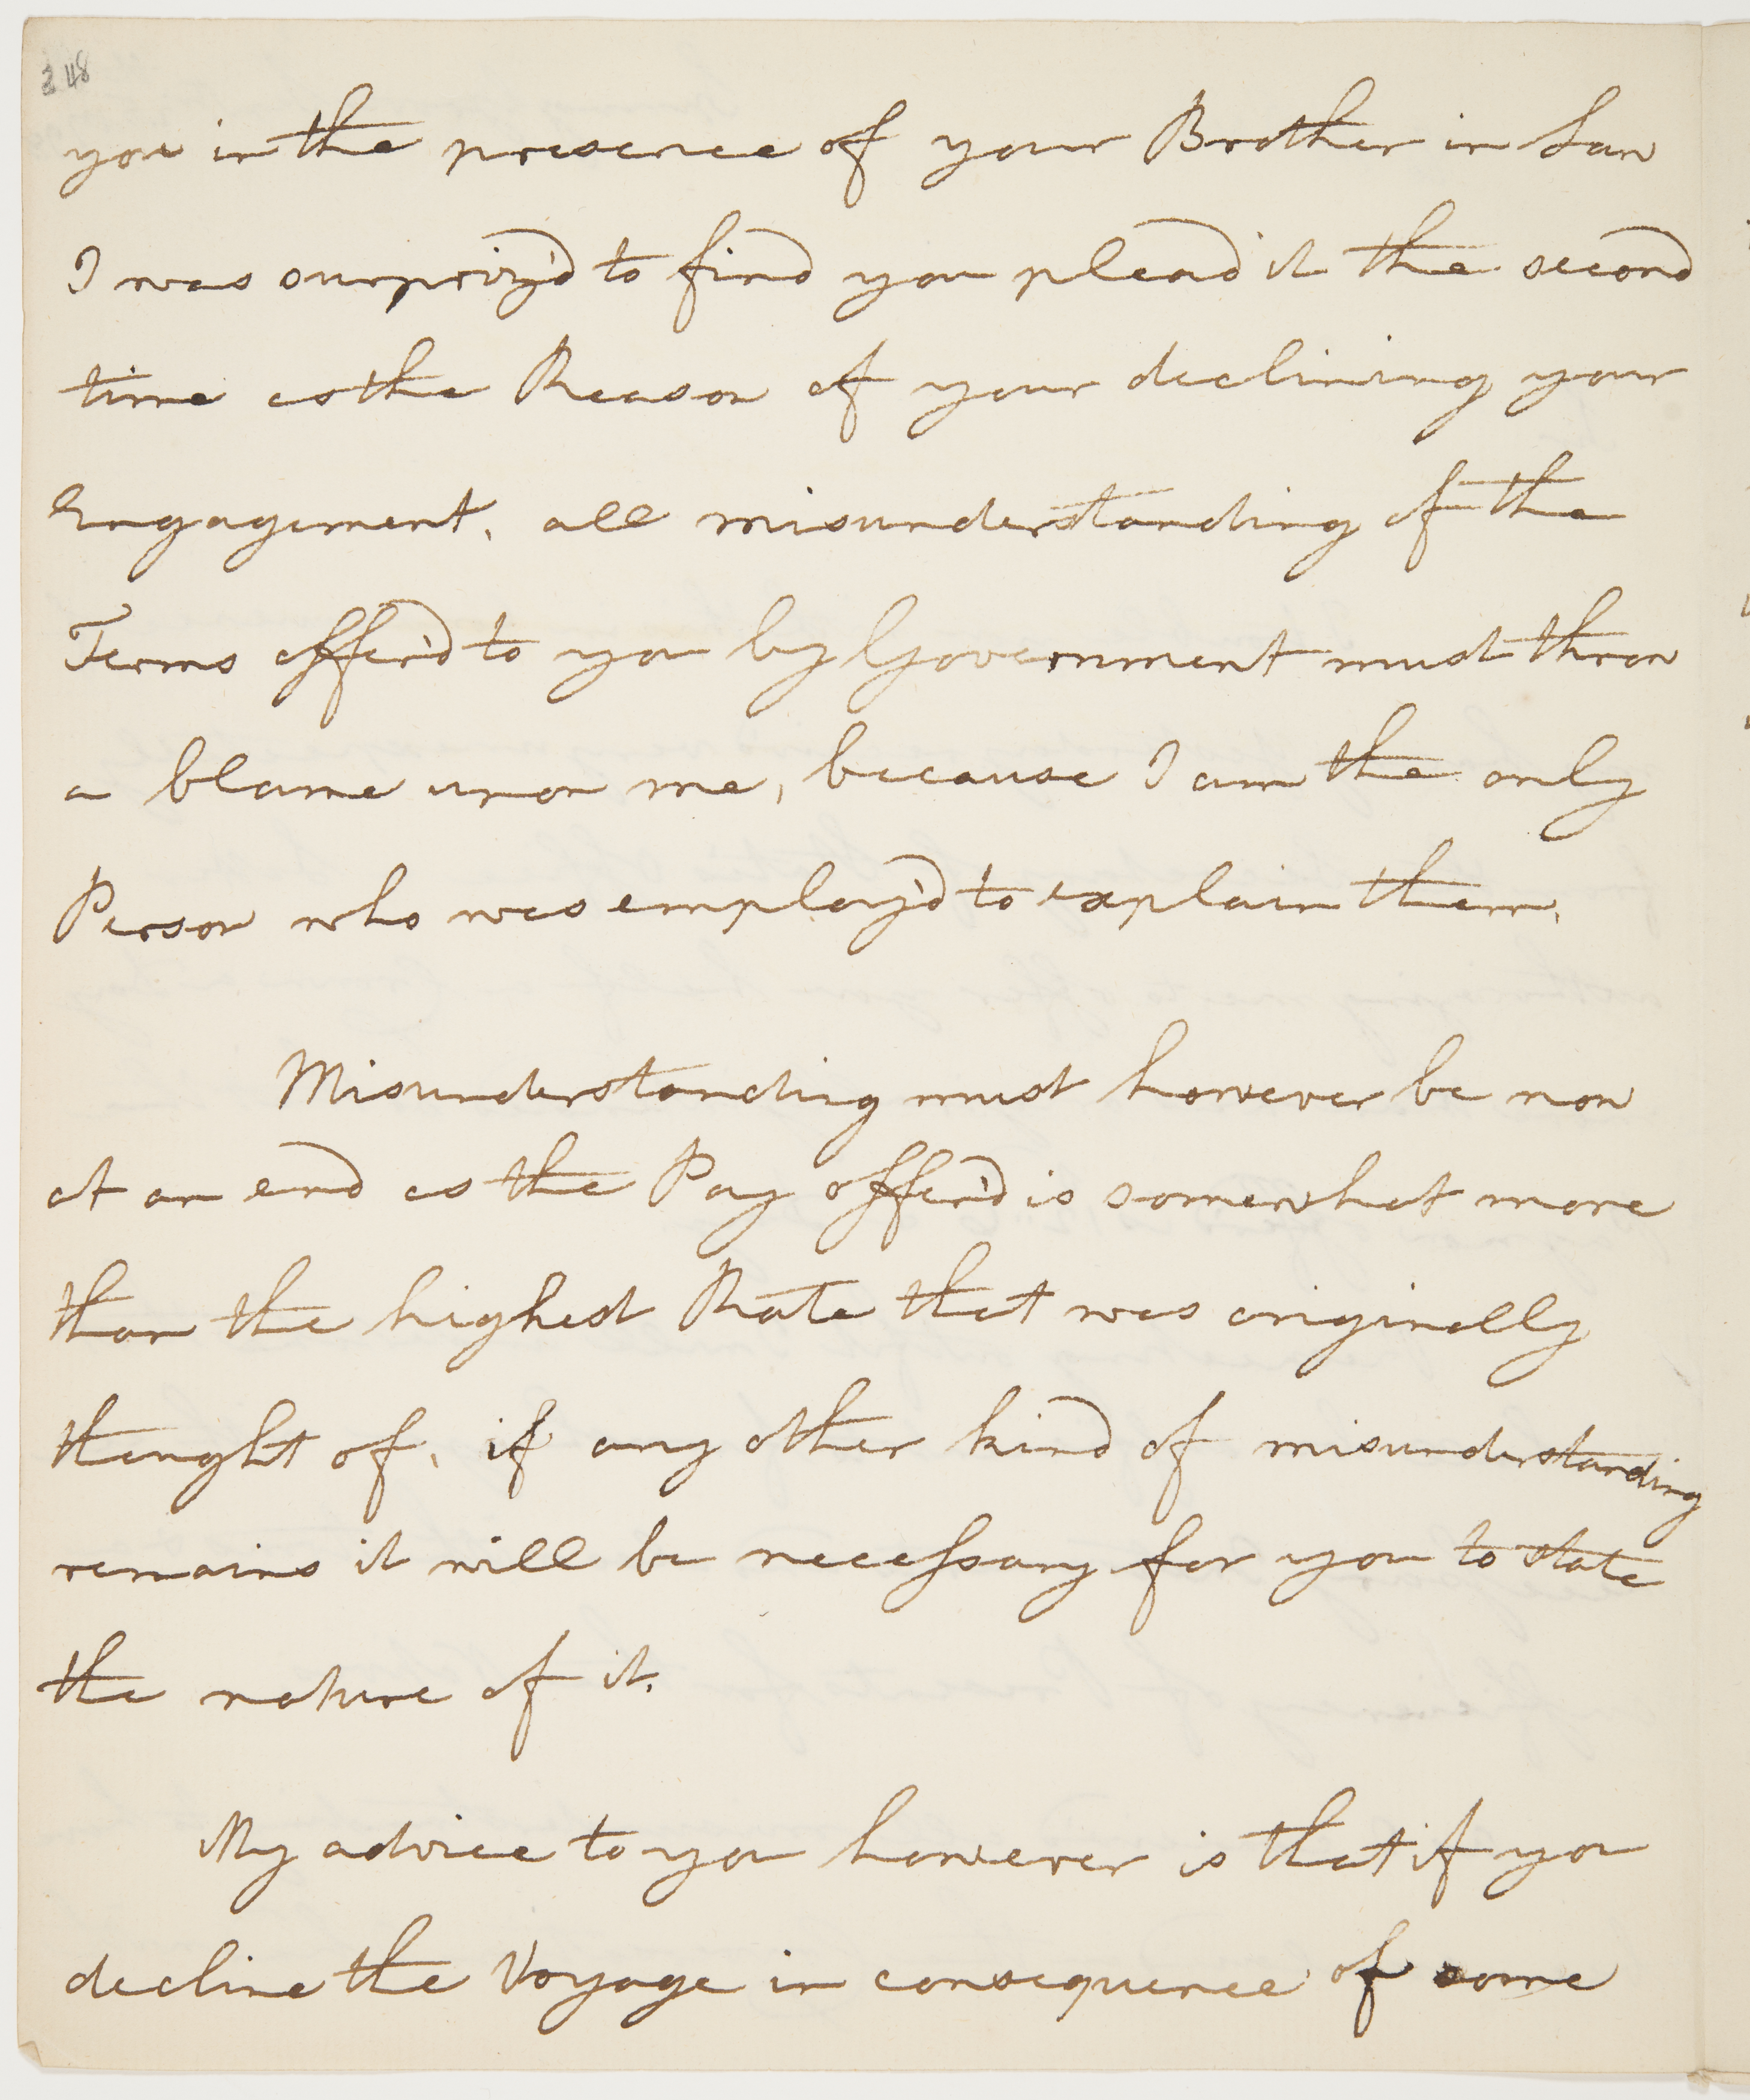 248
you in the presence of your Brother in Law
I was surpriz'd to find you plead it the second
time as the Reason of your declining your
Engagement, all misunderstanding of the
Terms offer'd to you by Government must throw
a blame upon me, because I am the only
Person who was employ'd to explain them.
Misunderstanding must however be now
at an end as the Pay offer'd is somewhat more
than the highest Rate that was originally
thought of, if any other kind of misunderstanding
remains it will be necessary for you to state
the nature of it.
My advice to you however is that if you
decline the Voyage in consequence of some